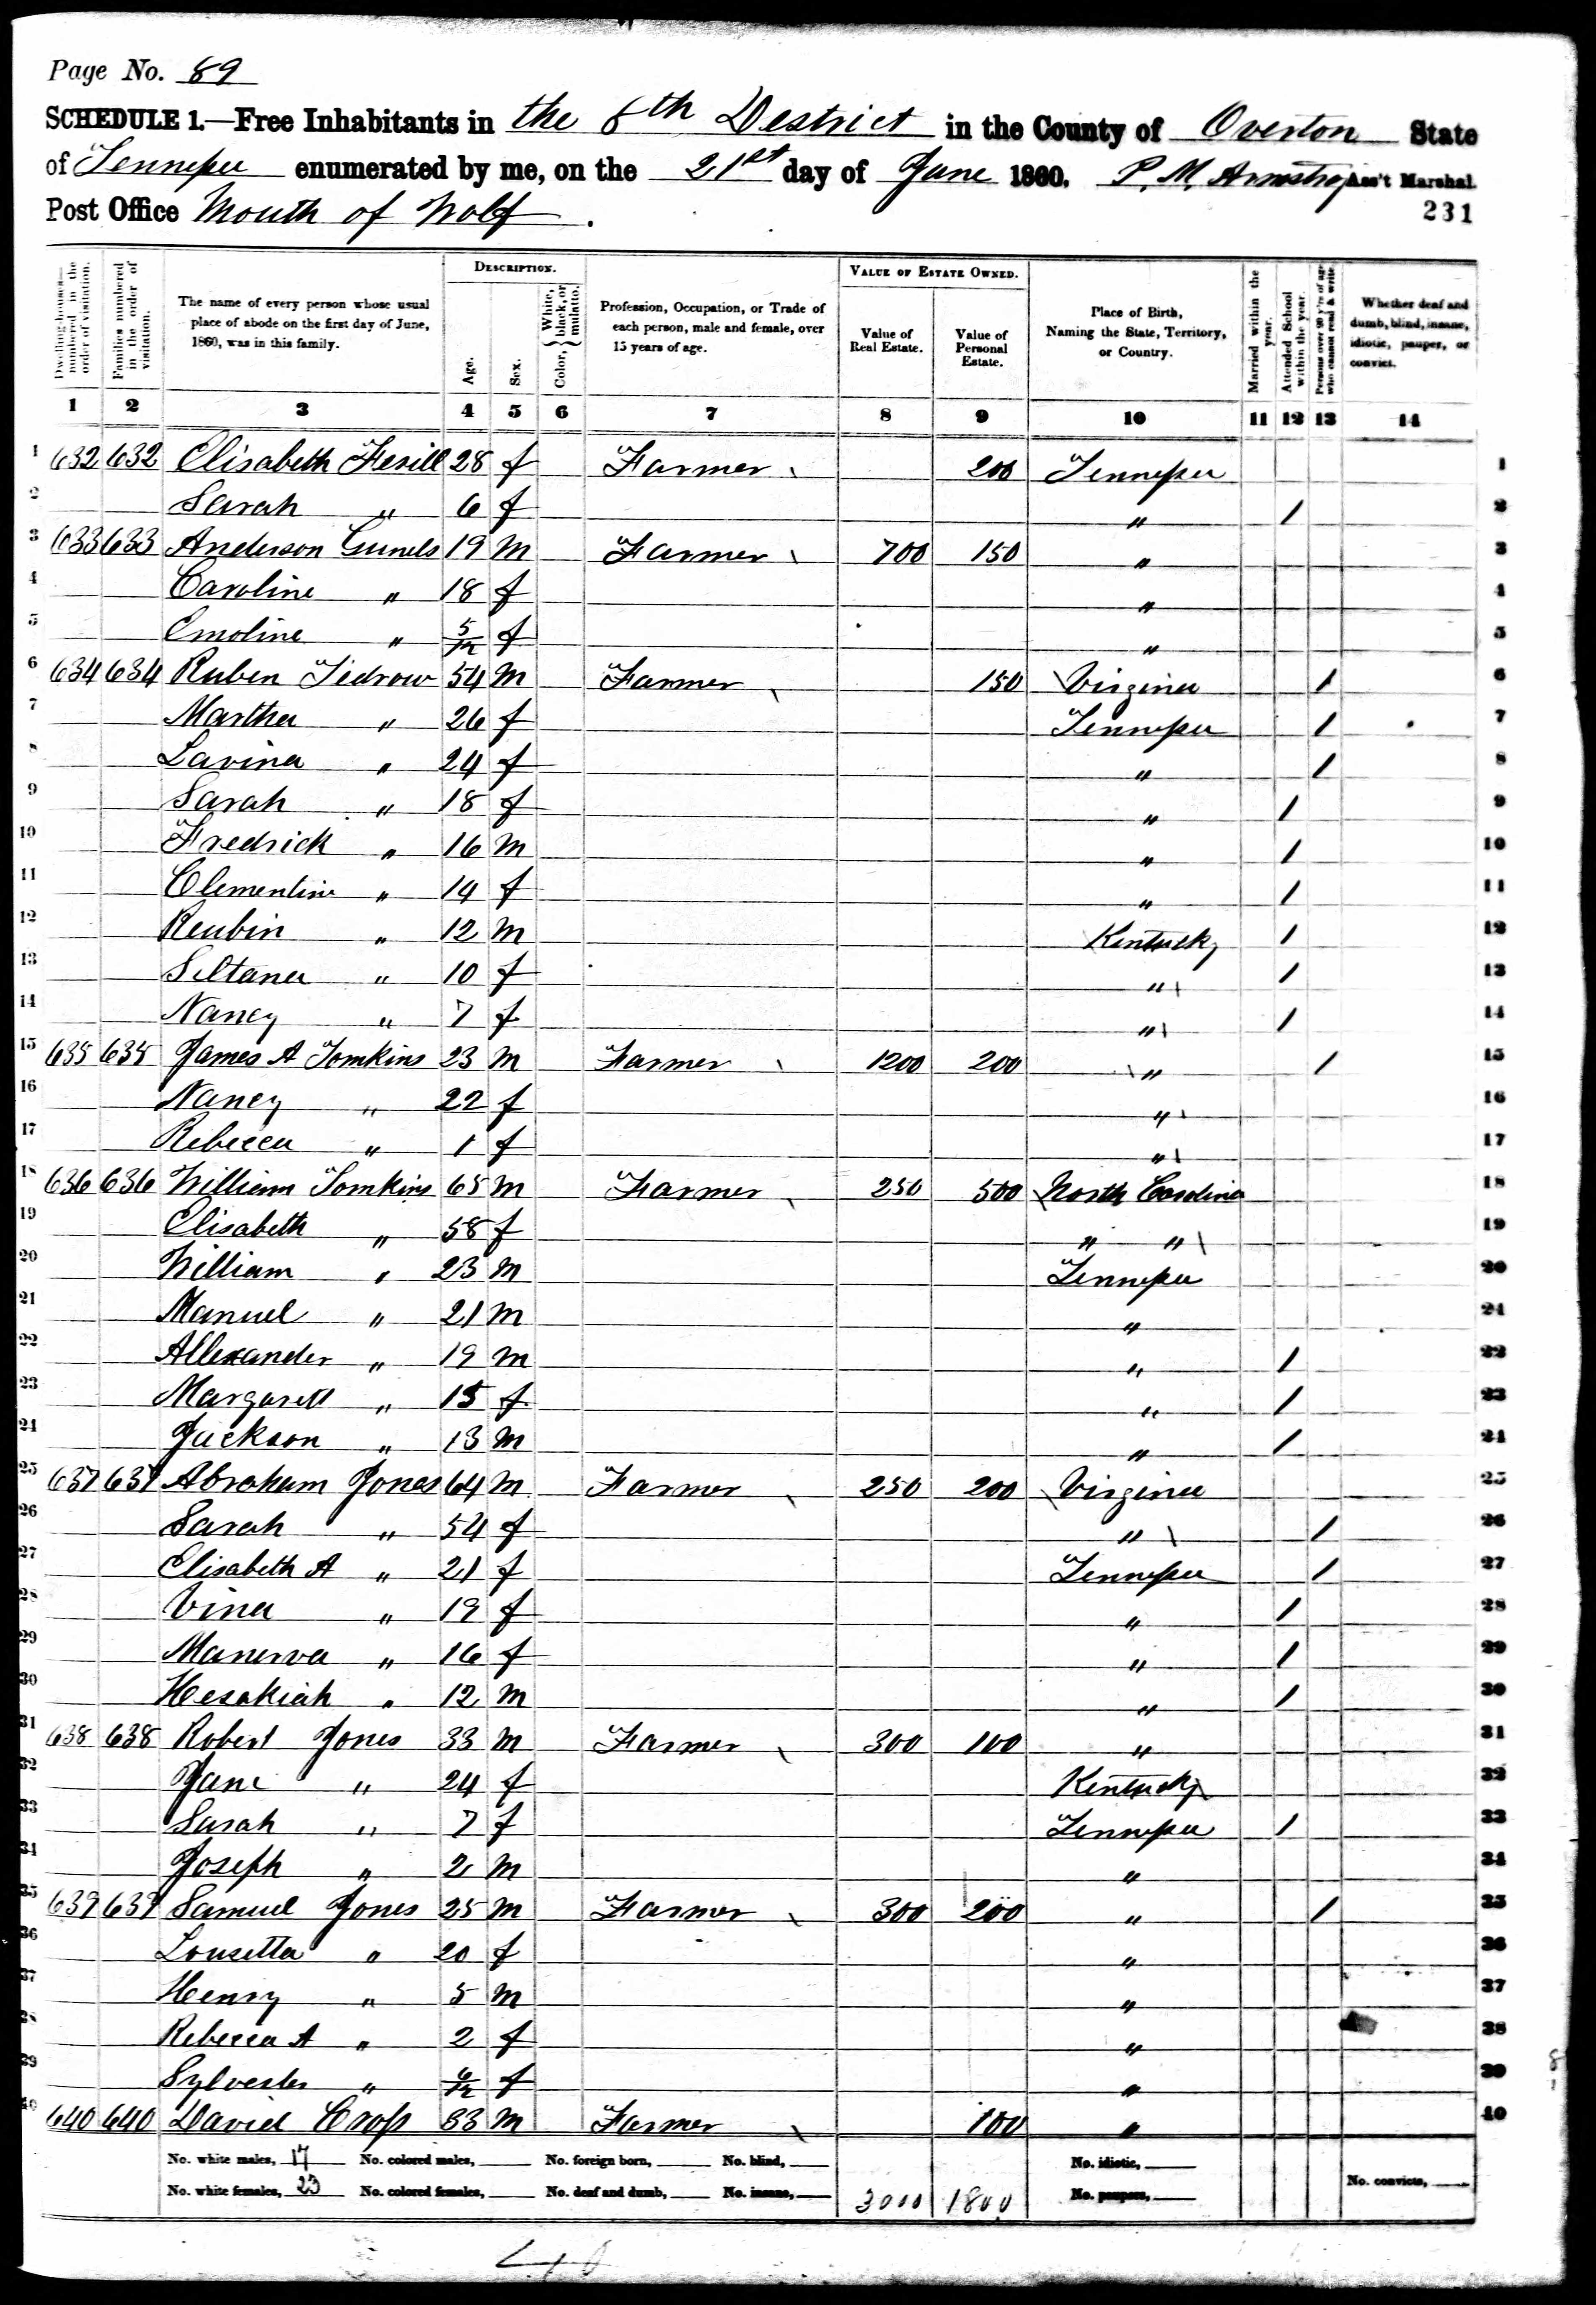 Page No. 89
SCHEDULE 1.—Free Inhabitants in the 8th District in the County of Overton State
of Tennessee enumerated by me, on the 21st day of June 1860. P. M. Armstrong Ass't Marshal.
Post Office Mouth of Wolf.
231
Dwelling-houses—numbered in the order of visitation.
Families numbered in the order of visitation.
The name of every person whose usual place of abode on the first day of June, 1860, was in this family.
DESCRIPTION.
Age.
Sex.
Color, { White, black, or mulatto.
Profession, Occupation, or Trade of each person, male and female, over 15 years of age.
VALUE OF ESTATE OWNED.
Value of Real Estate.
Value of Personal Estate.
Place of Birth, Naming the State, Territory, or Country.
Married within the year.
Attended School within the year.
Persons over 20 y'rs of age who cannot read & write.
Whether deaf and dumb, blind, insane, idiotic, pauper, or convict.
1 2 3 4 5 6 7 8 9 10 11 12 13 14
1 632 632 Elisabeth 28 f Farmer 200 Tennessee 1
2 Sarah " 6 f " / 2
3 633 633 Anderson 19 m Farmer 700 150 " 3
4 Caroline " 18 f " 4
5 Emoline " 5/12 f " 5
6 634 634 Ruben Tedrow 54 m Farmer 150 Virginia / 6
7 Martha " 26 f Tennessee / 7
8 Lavina " 24 f " / 8
9 Sarah " 18 f " / 9
10 Fredrick " 16 m " / 10
11 Clementine " 14 f " / 11
12 Reubin " 12 m Kentucky / 12
13 Siltana " 10 f " / 13
14 Nancy " 7 f " / 14
15 635 635 James A Tomkins 23 m Farmer 1200 200 " / 15
16 Nancy " 22 f " 16
17 Rebecca " 1 f " 17
18 636 636 William Tomkins 65 m Farmer 250 500 North Carolina 18
19 Elisabeth " 58 f " " 19
20 William " 23 m Tennessee 20
21 Manuel " 21 m " 21
22 Allexander " 19 m " / 22
23 Margarett " 15 f " / 23
24 Jackson " 13 m " / 24
25 637 637 Abraham Jones 64 m Farmer 250 200 Virginia 25
26 Sarah " 54 f " / 26
27 Elisabeth A " 21 f Tennessee / 27
28 Vina " 19 f " / 28
29 Manerva " 16 f " / 29
30 Hesakiah " 12 m " / 30
31 638 638 Robert Jones 33 m Farmer 300 100 " 31
32 Jane " 24 f Kentucky 32
33 Sarah " 7 f Tennessee / 33
34 Joseph " 2 m " 34
35 639 639 Samuel Jones 25 m Farmer 300 200 " / 35
36 Lousetta " 20 f " 36
37 Henry " 5 m " 37
38 Rebecca A " 2 f " 38
39 Sylvester " f " 39
40 640 640 David Cross 33 m Farmer 100 " 40
No. white males, 17 No. colored males, No. foreign born, No. blind, No. idiotic,
No. white females, 23 No. colored females, No. deaf and dumb, No. insane, 3000 1800 No. paupers, No. convicts,